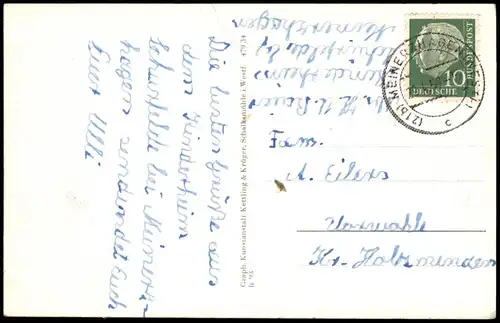 Die besten Grüße aus
dem Kinderheim
Schürfelde bei Meinerz-
hagen sendet Euch
Euer Ulli
Kinderheim
Schürfelde b/
Meinerzhagen
Graph. Kunstanstalt Kettling & Krüger, Schalksmühle i. Westf. 479 34
Fam.
A. Eilers
Vorwohle
Kr. Holzminden
(21b) MEINERZHAGEN
c
10
DEUTSCHE
BUNDESPOST